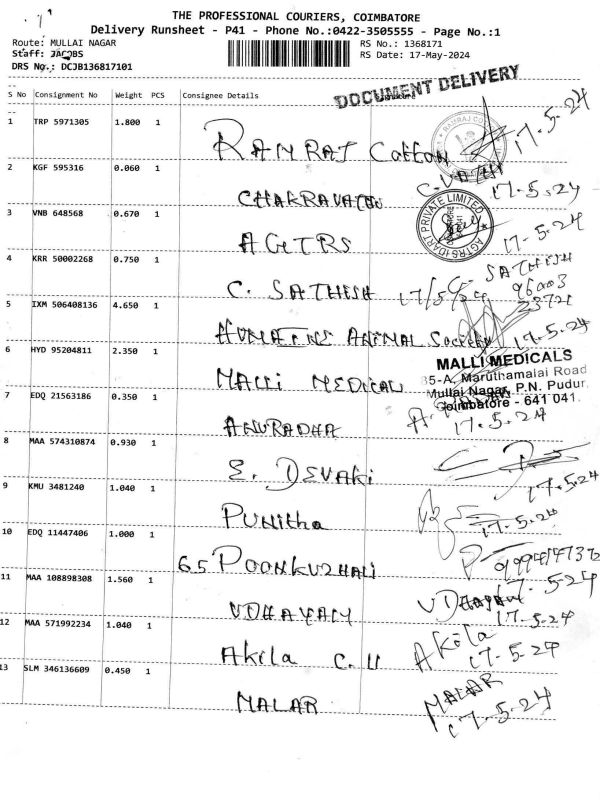 THE PROFESSIONAL COURIERS, COIMBATORE
Delivery Runsheet - P41 - Phone No.:0422-3505555 - Page No.:1
Route: MULLAI NAGAR RS No.: 1368171
Staff: JACOBS RS Date: 17-May-2024
DRS No.: DCJB136817101
DOCUMENT DELIVERY
S No Consignment No Weight PCS Consignee Details
1 TRP 5971305 1.800 1 RAMRAJ Cotton 17.5.24
2 KGF 595316 0.060 1 CHAKRAVATHI 17.5.24
3 VNB 648568 0.670 1 AGTRS 17-5-24
4 KRR 50002268 0.750 1 C. SATHISH 17/5/24 C. SATHISH
96003
23721
5 IXM 506408136 4.650 1 ANIMAL Society 17.5.24
6 HYD 95204811 2.350 1 MALLI MEDICAL
MALLI MEDICALS
35-A, Maruthamalai Road
Mullai Nagar, P.N. Pudur,
Coimbatore - 641 041.
7 EDQ 21563186 0.350 1 ANURADHA 17.5.24
8 MAA 574310874 0.930 1 E. DEVAKI 17.5.24
9 KMU 3481240 1.040 1 PUNITHA 17.5.24
10 EDQ 11447406 1.000 1 65 POONKUZHALI
11 MAA 108898308 1.560 1 UDHAYAM UDHAYAM 17.5.24
17.5.24
12 MAA 571992234 1.040 1 Akila C. U Akila
17.5.24
13 SLM 346136609 0.450 1 MALAR MALAR
17.5.24